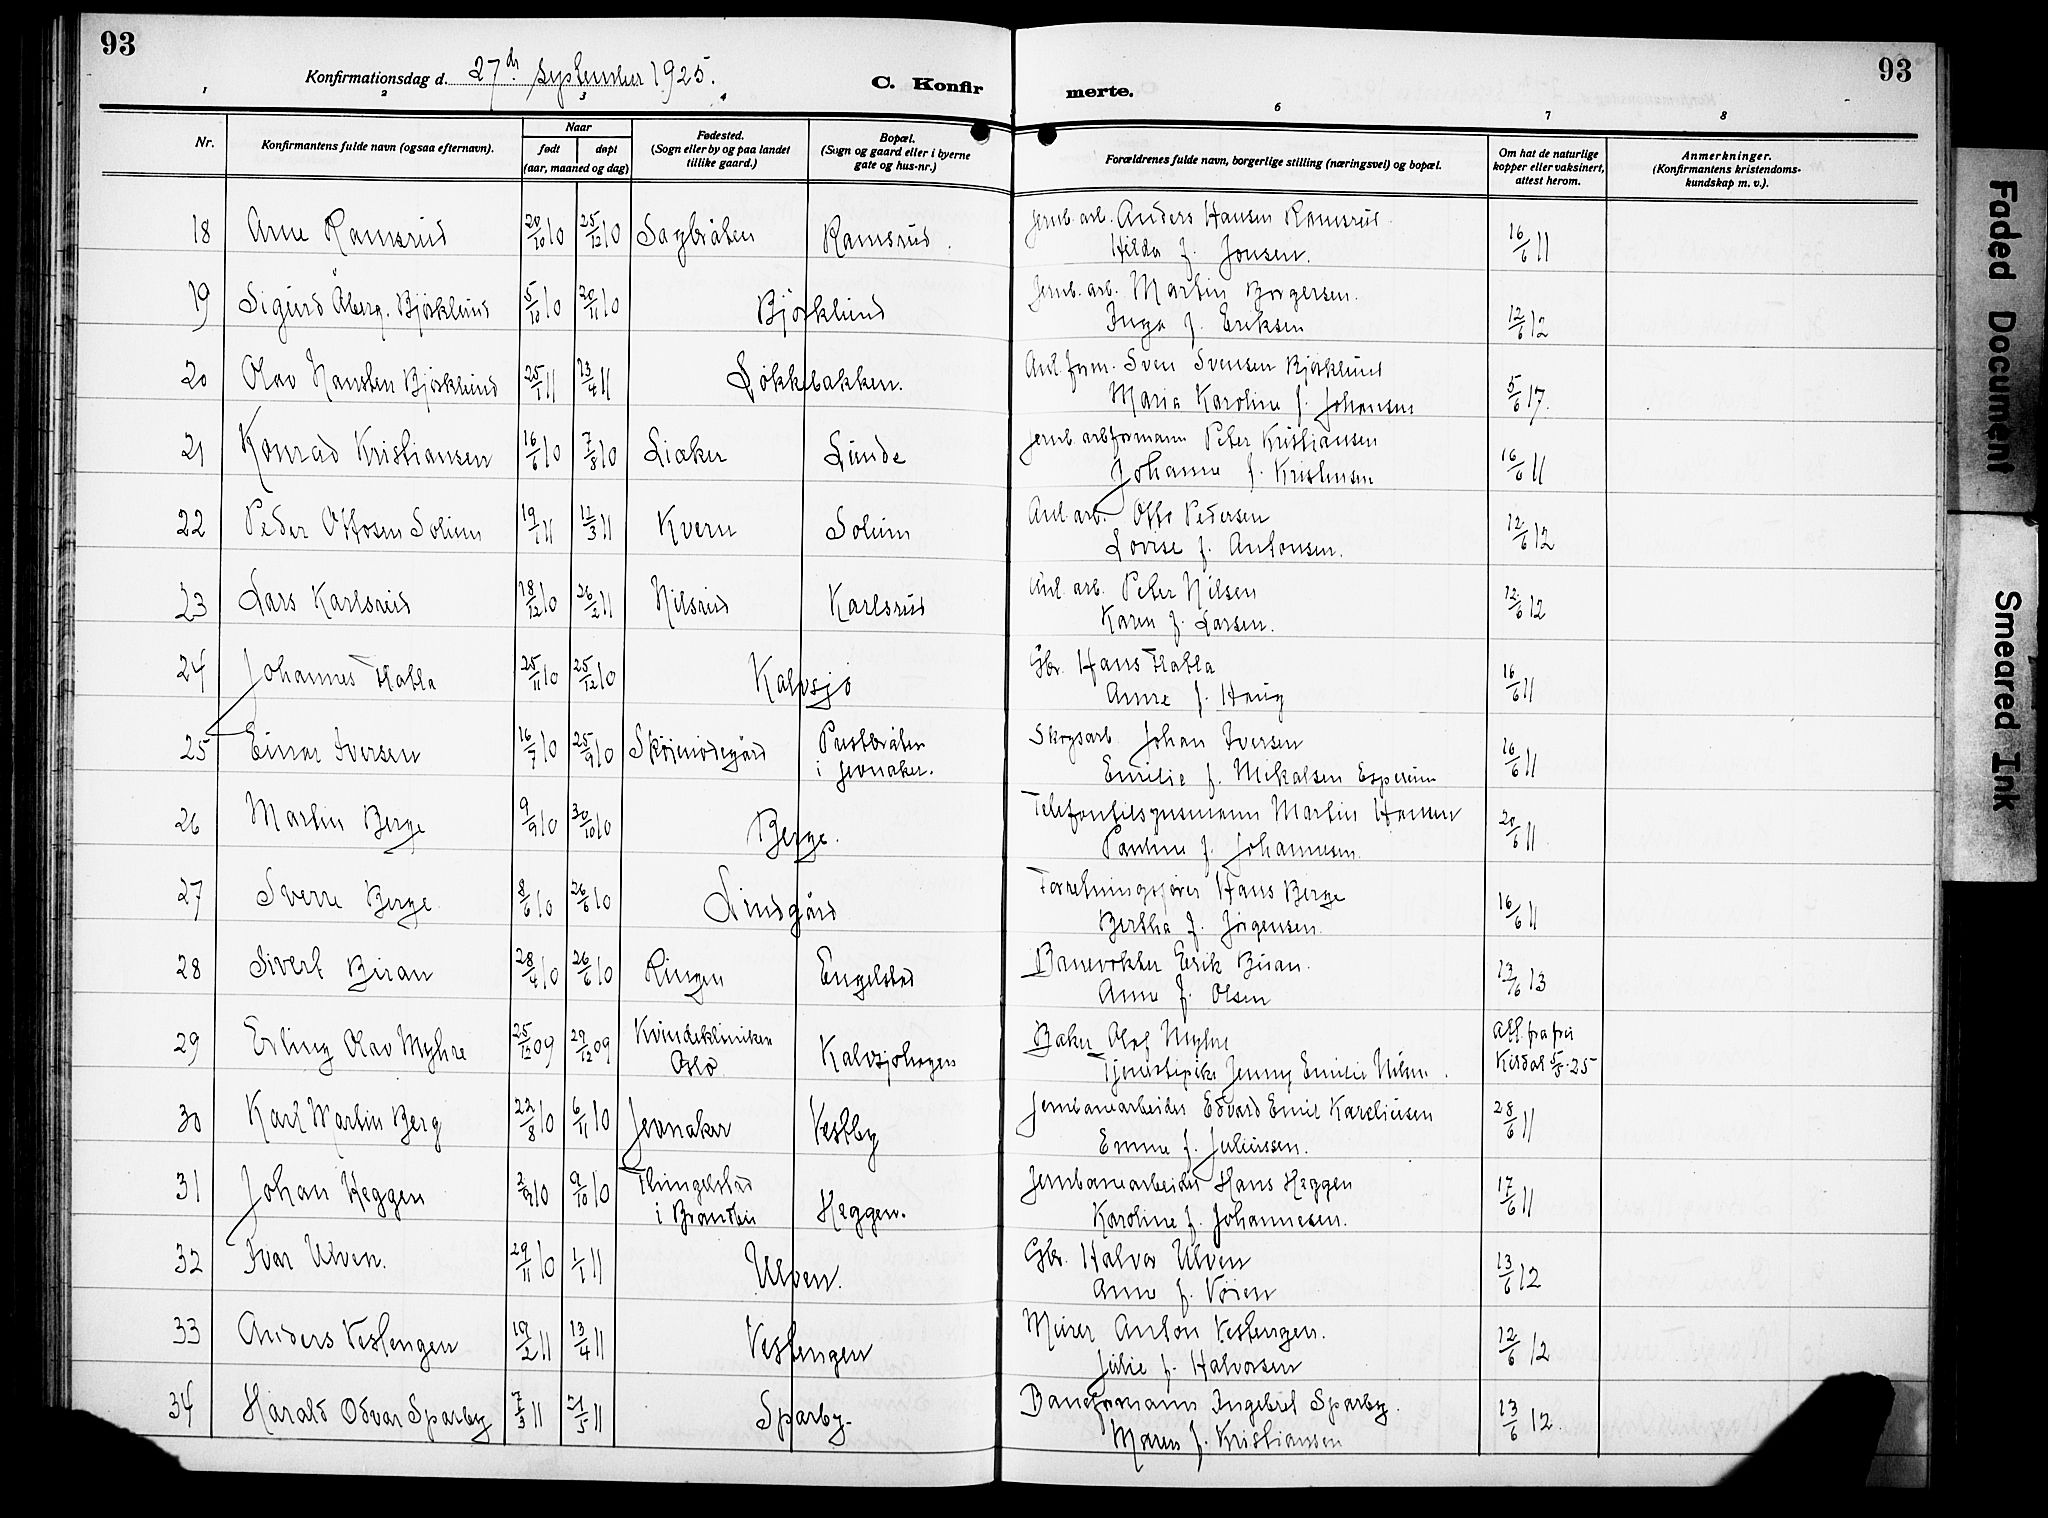 93
93
Konfirmationsdag d. 27de September 1925.
C. Konfirmerte.
1 2 3 4 6 7 8
Nr.
Konfirmantens fulde navn (ogsaa efternavn).
Naar
født døpt
(aar, maaned og dag)
Fødested.
(Sogn eller by og paa landet
tillike gaard.)
Bopæl.
(Sogn og gaard eller i byerne
gate og hus-nr.)
Forældrenes fulde navn, borgerlige stilling (næringsvei) og bopæl.
Om hat de naturlige
kopper eller vaksinert,
attest herom.
Anmerkninger.
(Konfirmantens kristendoms-
kundskap m. v.).
18 Arne Ramsrud 20/10 10 25/12 10 Sagbråten Ramsrud. Jernb. arb. Anders Hansen Ramsrud 16/6 11
Hilda f. Jonsen.
19 Sigurd Åberg. Björklund 5/10 10 20/11 10 Björklund Jernb. arb. Martin Borgersen. 12/6 12
Inga f. Eriksen
20 Olav Björklund 25/1 11 13/4 11 Løkkebakken. Anl. form. Sven Svensen Björklund 5/6 17.
Maria Karoline f. Johansen
21 Konrad Kristiansen 16/6 10 7/8 10 Liaker Lunde Jernb. arbformann Peter Kristiansen 16/6 11
Johanne f. Kristensen
22 Peder Ottosen Solum 19/1 11 12/3 11 Kvern Solum Anl. arb. Otto Pedersen 12/6 12
Lovise f. Antonsen.
23 Lars Karlsrud 18/12 10 26/2 11 Nilsrud Karlsrud Anl. arb. Peter Nilsen 12/6 12
Karen f. Larsen.
24 Johannes Flatla 25/11 10 25/12 10 Kalvsjø Gbr. Hans Flatla 16/6 11
Anne f. Haug
25 Einar Iversen 16/7 10 25/9 10 Skøienødegård Pustbråten Skogsarb Johan Iversen 16/6 11
i Jevnaker. Emilie f. Mikalsen Espereim
26 Martin Berge 9/9 10 30/10 10 Berge. Telefontilsynsmann Martin Hansen 20/6 11
Pauline f. Johannesen.
27 Sverre Berge 8/6 10 26/6 10 Lindgård Forretningsfører Hans Berge 16/6 11
Bertha f. Jörgensen.
28 Sivert Buran 28/4 10 26/6 10 Ringen Engelstad Banevokter Eerik Buran. 13/6 13
Anne f. Olsen
29 Erling Olav Myhre 25/12 09 29/12 09 Kvindekliniken Kalvsjøhagen Baker Olof Myhre Att. fra frü
Oslo Tjenestepike Jenny Emilie Nilsen. Kildal 5/5 -25
30 Karl Martin Berg 22/8 10 6/11 10 Jevnaker Vestby Jernbanearbeider Edvard Emil Kareliusen 28/6 11
Emma f. Juliussen.
31 Johan Heggen 2/9 10 9/10 10 Thingelstad Heggen. Jernbanearbeider Hans Heggen 17/6 11
i Brandbu Karoline f. Johannesen.
32 Ivar Ulven. 29/11 10 1/1 11 Ulven. Gbr. Halvor Ulven 13/6 12
Anne f. Vøien
33 Anders Vestengen 19/2 11 13/4 11 Vestengen Murer Anton Vestengen. 12/6 12
Julie f. Halvorsen
34 Harald Odvar Sparby 7/3 11 21/5 11 Sparby. Baneformann Ingebret Sparby. 13/6 12.
Maren f. Kristiansen
Faded Document
Smeared Ink